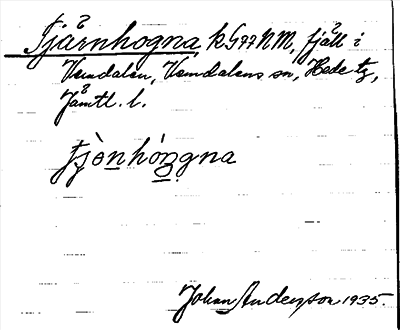 Tjärnhogna, k G77NM, fjäll i
Vemdalen, Vemdalens sn, Hede tg,
Jämtl. l.
tjèn hóŋgna
Johan Anderson 1935.